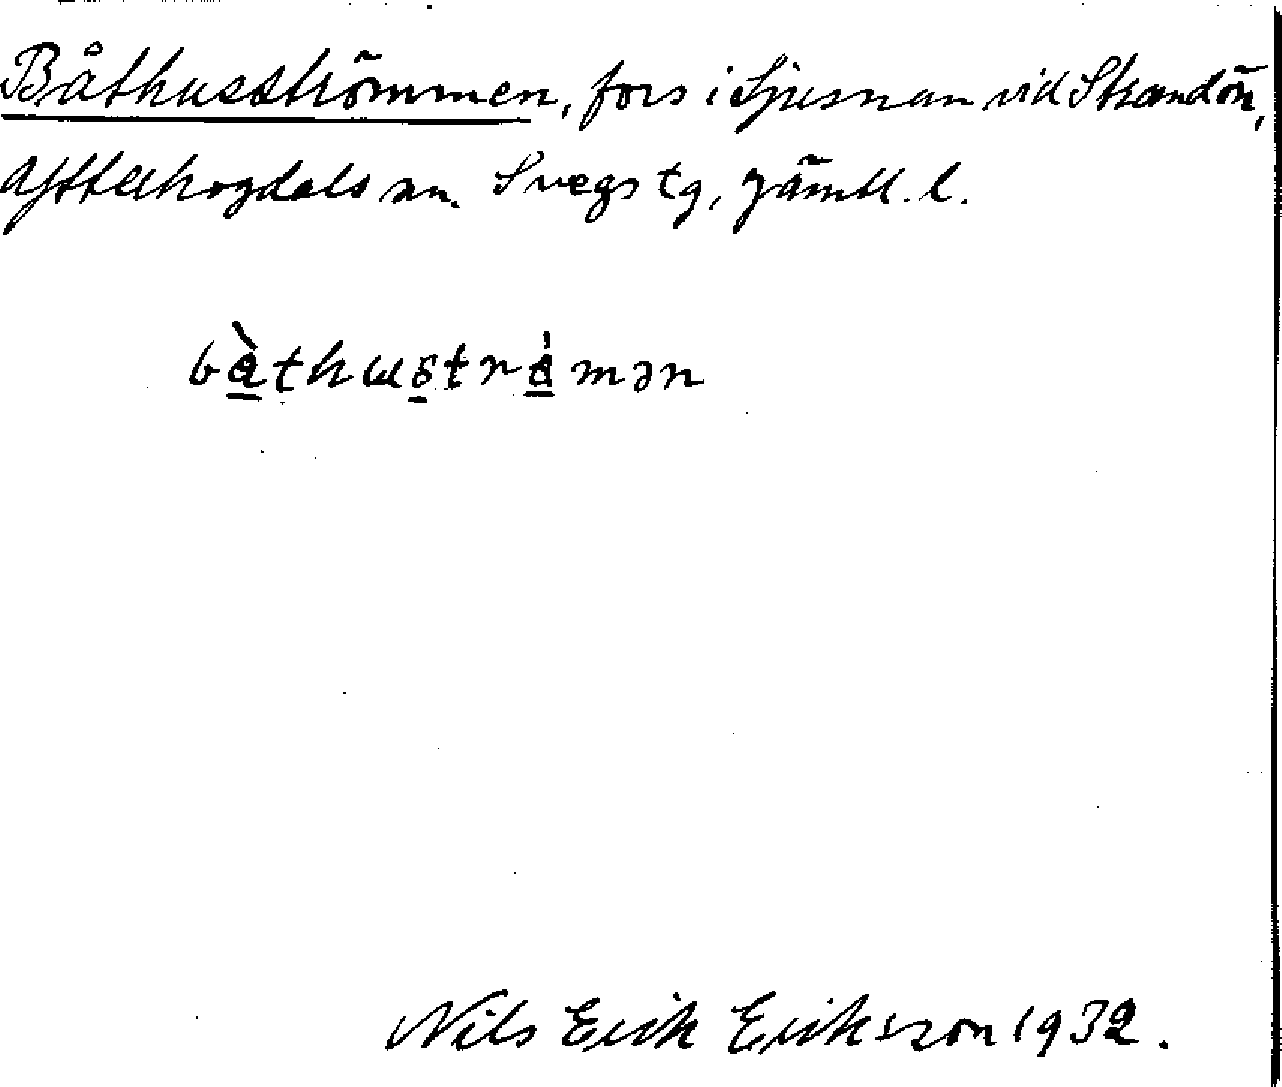 Båthusströmmen, fors i Ljusnan vid Strandön,
Ytterhogdals sn. Svegs tg, Jämtl. l.
bàthustrámən
Nils Erik Eriksson 1932.